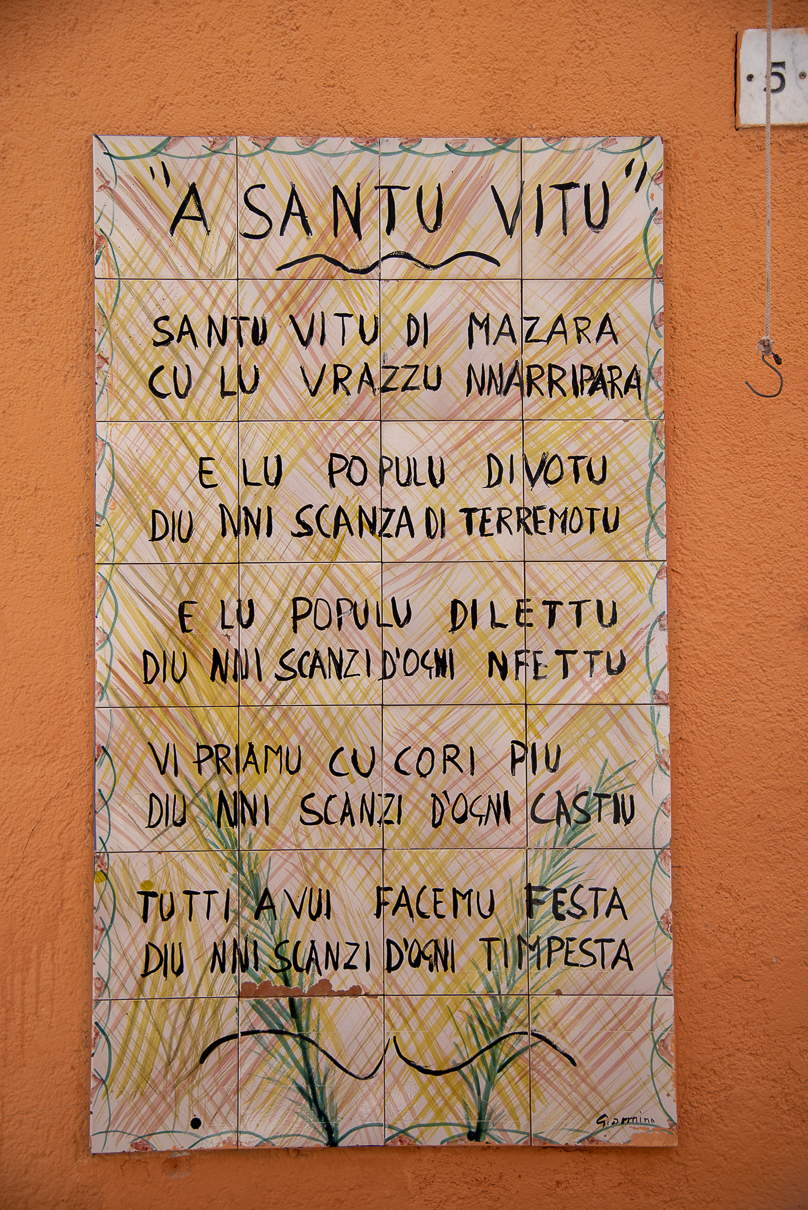 5
"A SANTU VITU"
SANTU VITU DI MAZARA
CU LU VRAZZU NNARRIPARA
E LU POPULU DIVOTU
DIU NNI SCANZA DI TERREMOTU
E LU POPULU DILETTU
DIU NNI SCANZI D'OGNI NFETTU
VI PRIAMU CU CORI PIU
DIU NNI SCANZI D'OGNI CASTIU
TUTTI A VUI FACEMU FESTA
DIU NNI SCANZI D'OGNI TIMPESTA